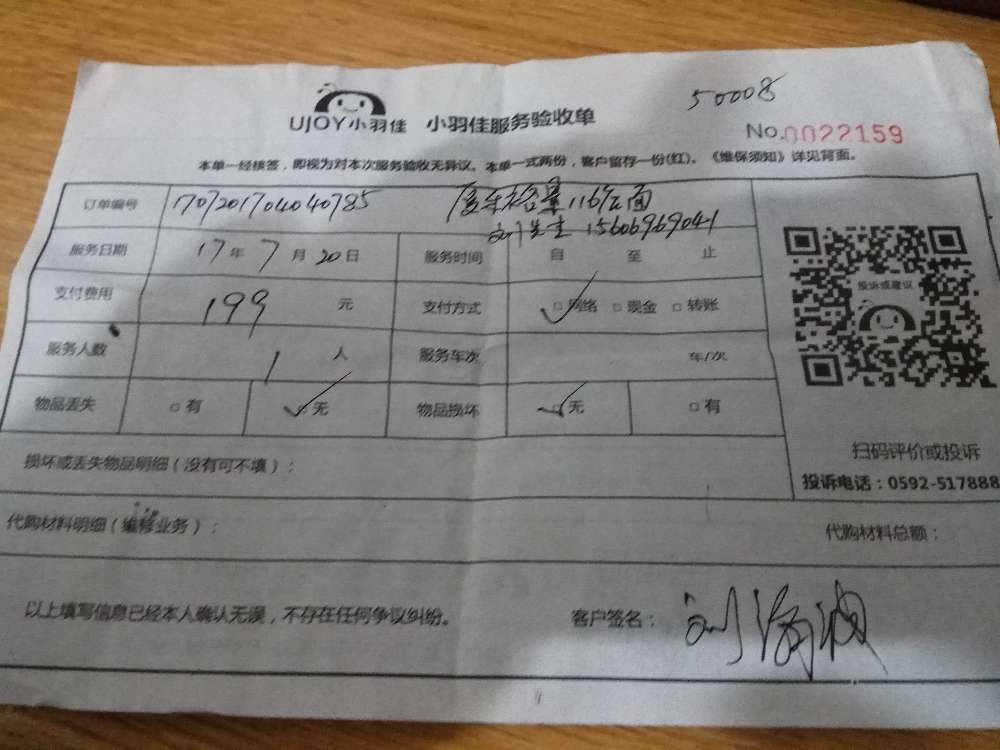 50008
UJOY小羽佳 小羽佳服务验收单
No.0022159
本单一经核签，即视为对本次服务验收无异议。本单一式两份，客户留存一份(红)。《维保须知》详见背面。
订单编号 170720170404040785 116店面
刘先生 15606969041
服务日期 17年7月20日 服务时间 自 至 止
投诉或建议
支付费用 199 元 支付方式 □网络 □现金 □转账
服务人数 1 人 服务车次 年/次
物品丢失 □有 □无 物品损坏 □无 □有
扫码评价或投诉
损坏或丢失物品明细(没有可不填)：
投诉电话：0592-517888
代购材料明细(维修业务)： 代购材料总额：
以上填写信息已经本人确认无误，不存在任何争议纠纷。 客户签名：刘